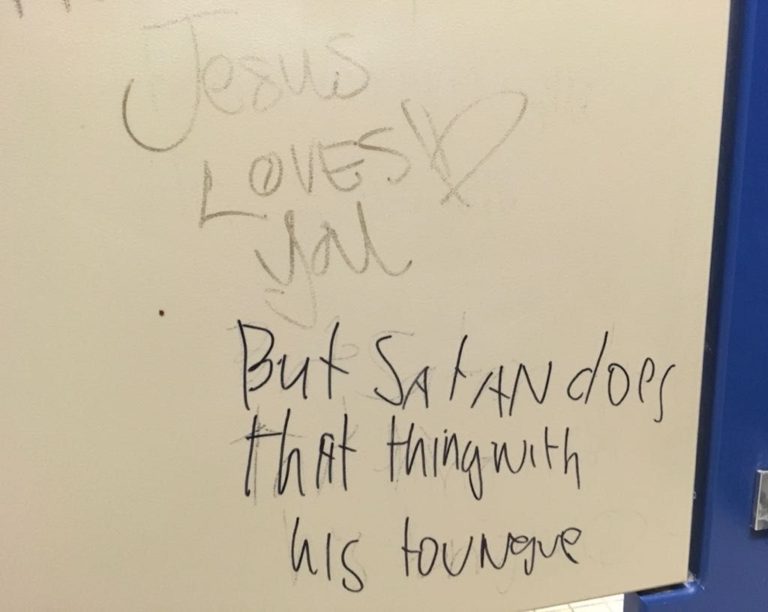 Jesus
LOVES
you
But SATAN does
that thing with
his toungue